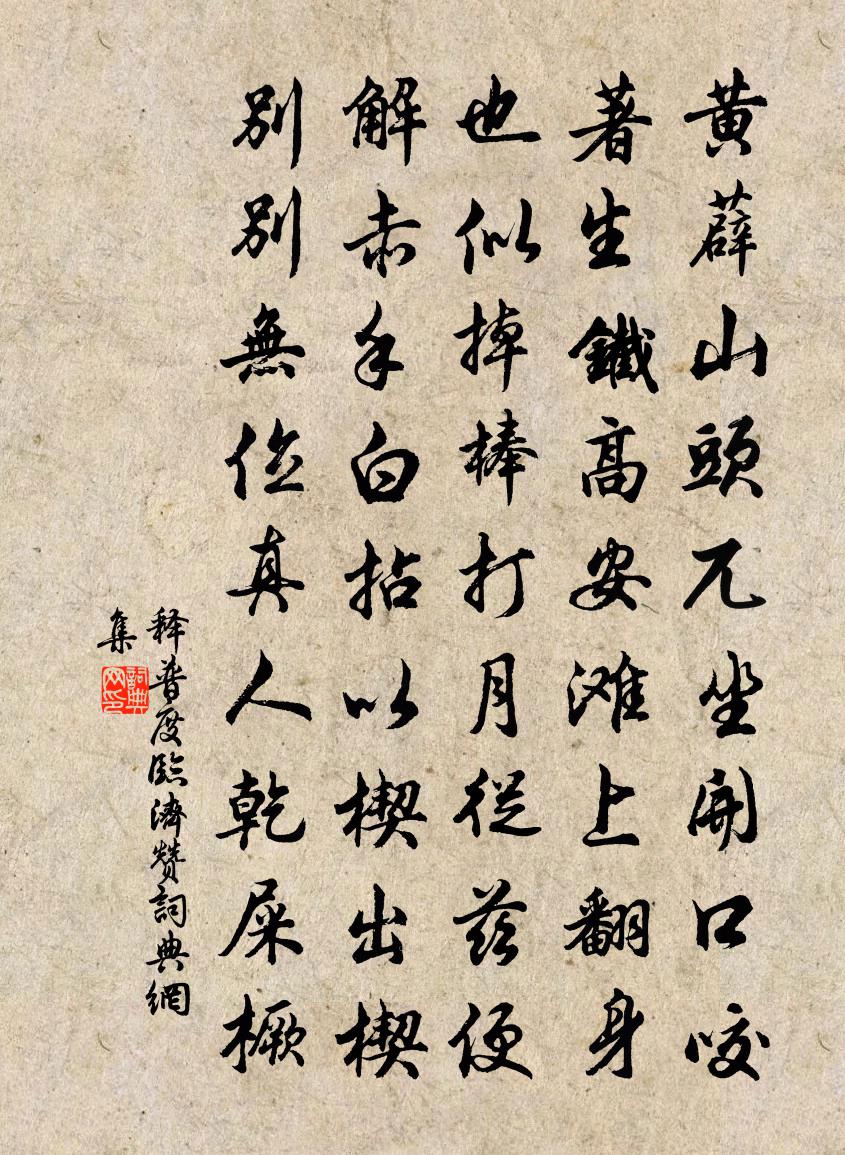 黄薜山頭兀坐開口咬
著生鐵高安滩上翻身
也似掉棒打月從茲便
解赤手白拈以楔出楔
別別無位真人乾屎橛
釋普度臨濟贊詞典網
集
詞典网印